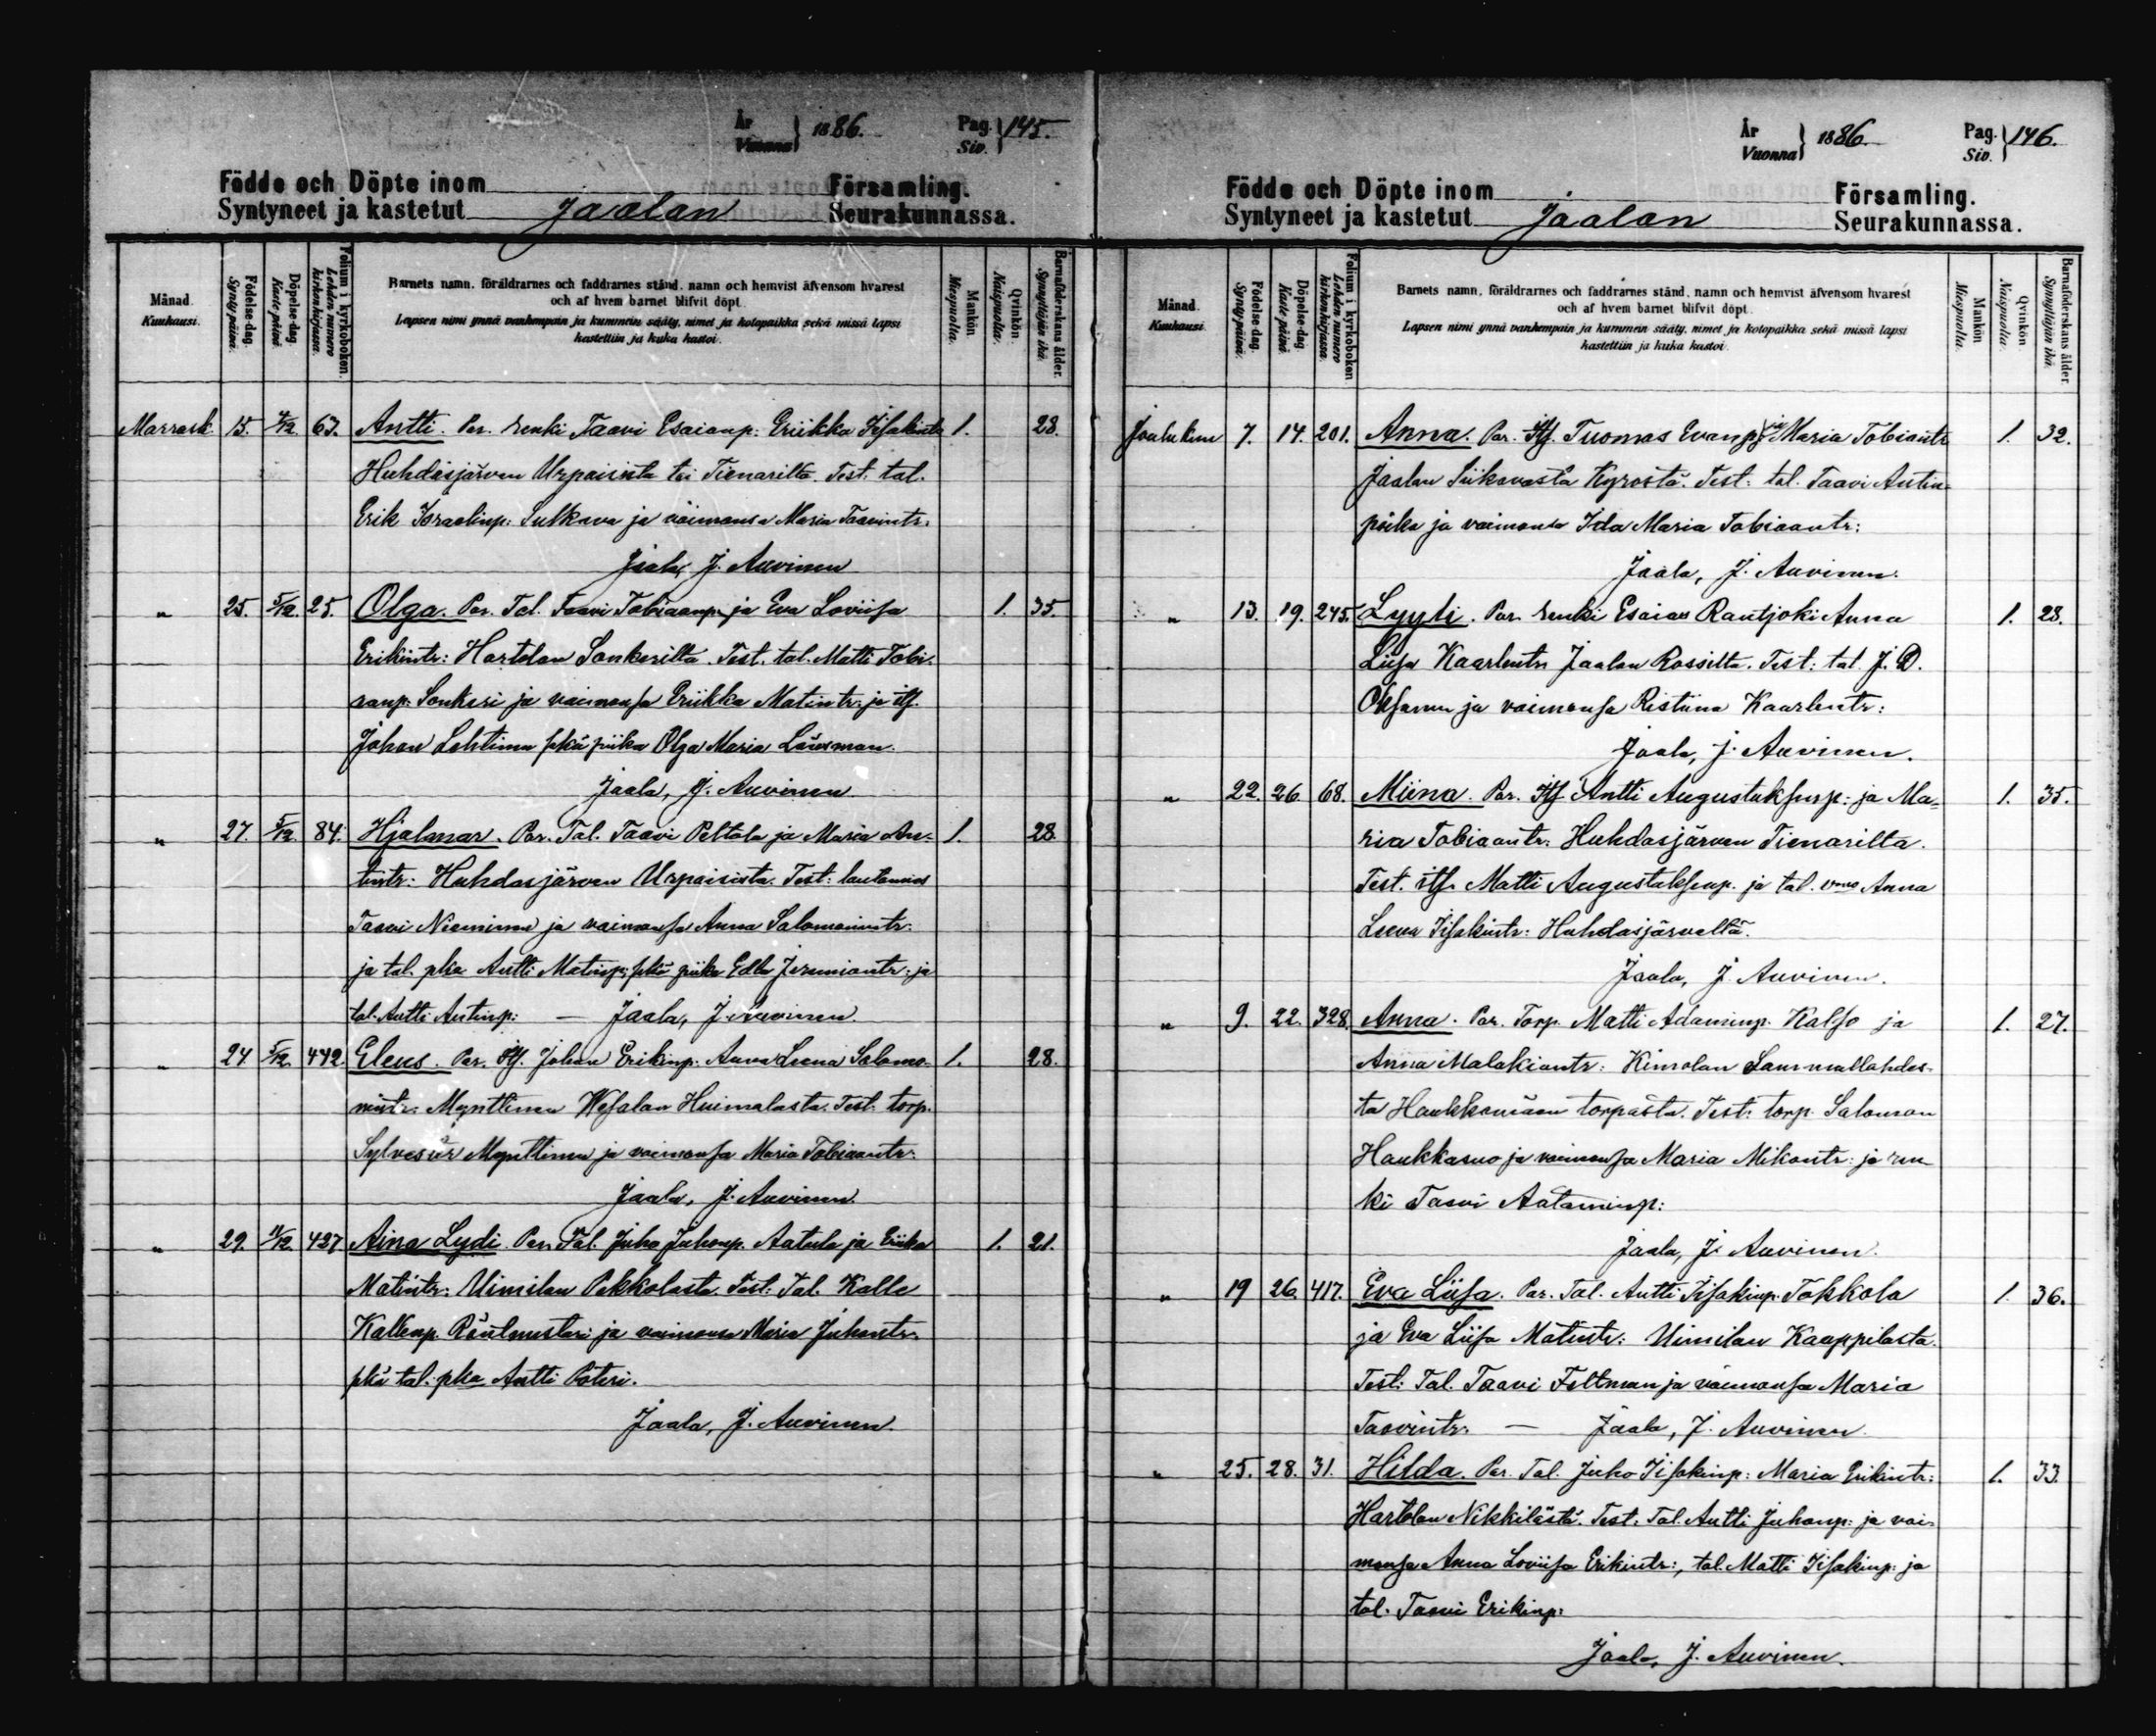 År Vuonna } 1886. Pag. Siv. } 145.
Födde och Döpte inom Församling.
Syntyneet ja kastetut Jaalan Seurakunnassa.
Månad. Kuukausi. Födelse-dag. Synty päinä. Döpelse-dag. Kaste päinä. Folium i kyrkoboken. Lehden numero kirkonkirjassa. Barnets namn, föräldrarnes och faddrarnes stånd, namn och hemvist äfvensom hvarest och af hvem barnet blifvit döpt. Mankön. Miespuolta. Qvinkön. Naispuolta. Barnaföderskans ålder. Synnyttäjän ikä.
Lapsen nimi ynnä vanhempain ja kummein sääty, nimet ja kotopaikka sekä missä lapsi kastettiin ja kuka kastoi.
Marrask. 15. 4/12 63. Antti. Par. renki Taavi Esaianp: Eriikka Iisakintr 1. 28.
Huhdasjärven Urpaisista tai Tienarilta. Test. tal.
Erik Israelinp: Sulkava ja vaimonsa Maria Taavintr.
Jaala, J. Auvinen
" 25. 5/12. 25. Olga. Par. Tal. Taavi Tobiaanp. ja Eva Loviisa 1. 35.
Erikintr: Hartolan Sonkerilta. Test. tal. Matti Tobi-
aanp. Sonkeri ja vaimonsa Eriikka Matintr: ja itf.
Johan Lehtinen sekä piika Olga Maria Länsman.
Jaala, J. Auvinen
" 27. 5/12. 84. Hjalmar. Par. Tal. Taavi Peltola ja Maria An- 1. 28
tintr: Huhdasjärven Urpaisista. Test: lautamies
Taavi Nieminen ja vaimonsa Anna Salomonintr:
ja tal. pka Antti Matinp: sekä piika Edla Jeremiantr: ja
tal. Antti Antinp: — Jaala, J. Auvinen.
" 24 5/12. 442. Eleus. Par. itf. Johan Erikinp. Anna Leena Salomo- 1. 28.
nintr. Mynttinen Wesalan Huimalasta. Test. torp.
Sylvester Mynttinen ja vaimonsa Maria Tobiaantr.
Jaala, J. Auvinen.
" 29. 11/12. 427 Aina Lydi. Par. Tal. Juho Juhonp. Aatula ja Eriika 1. 21.
Matintr: Uimilan Pekkolasta. Test: Tal. Kalle
Kallenp. Räntmestari ja vaimonsa Maria Juhontr.
sekä tal. pka Antti Poteri.
Jaala, J. Auvinen.
År Vuonna } 1886. Pag. Siv. } 146.
Födde och Döpte inom Församling.
Syntyneet ja kastetut Jaalan Seurakunnassa.
Månad. Kuukausi. Födelse-dag. Synty päinä. Döpelse-dag. Kaste päinä. Folium i kyrkoboken. Lehden numero kirkonkirjassa. Barnets namn, föräldrarnes och faddrarnes stånd, namn och hemvist äfvensom hvarest och af hvem barnet blifvit döpt. Mankön. Miespuolta. Qvinkön. Naispuolta. Barnaföderskans ålder. Synnyttäjän ikä.
Lapsen nimi ynnä vanhempain ja kummein sääty, nimet ja kotopaikka sekä missä lapsi kastettiin ja kuka kastoi.
Joulukuu 7. 14. 201. Anna. Par. Itf. Tuomas Evanp. ja Maria Tobiantr 1. 32.
Jaalan Siikavasta Kyrostä. Test: tal. Taavi Antin-
poika ja vaimonsa Ida Maria Tobiaantr:
Jaala, J. Auvinen.
" 13. 19. 245. Lyyti. Par. renki Esaias Rantjoki Anna 1. 28.
Liisa Kaarlentr Jaalan Rossilta. Test: tal. J. D.
Oksanen ja vaimonsa Ristiina Kaarlentr:
Jaala, J. Auvinen.
" 22. 26. 68. Miina. Par. Itf Antti Augustuksenp: ja Ma- 1. 35.
ria Tobiaantr: Huhdasjärven Tienarilta.
Test. itf. Matti Augustuksenp. ja tal. vmo Anna
Leena Iisakintr: Huhdasjärveltä.
Jaala, J. Auvinen.
" 9. 22. 328. Anna. Par. Torp. Matti Adaminp. Kalso ja 1. 27.
Anna Malakiantr: Kimolan Sammallahdes-
ta Haukkamäen torpasta. Test: torp. Salomon
Haukkasuo ja vaimonsa Maria Mikontr: ja ren-
ki Taavi Aataminp:
Jaala, J. Auvinen.
" 19 26. 417. Eva Liisa. Par. Tal. Antti Iisakinp. Tokkola 1. 36.
ja Eva Liisa Matintr: Uimilan Kauppilasta.
Test: Tal. Taavi Feltman ja vaimonsa Maria
Taavintr. — Jaala, J. Auvinen.
" 25. 28. 31. Hilda. Par. Tal. Juho Iisakinp: Maria Erikintr: 1. 33.
Hartolan Nikkilästä. Test: Tal. Antti Juhonp: ja vai-
monsa Anna Loviisa Erikintr:, tal. Matti Iisakinp: ja
tal. Taavi Erikinp:
Jaala, J. Auvinen.